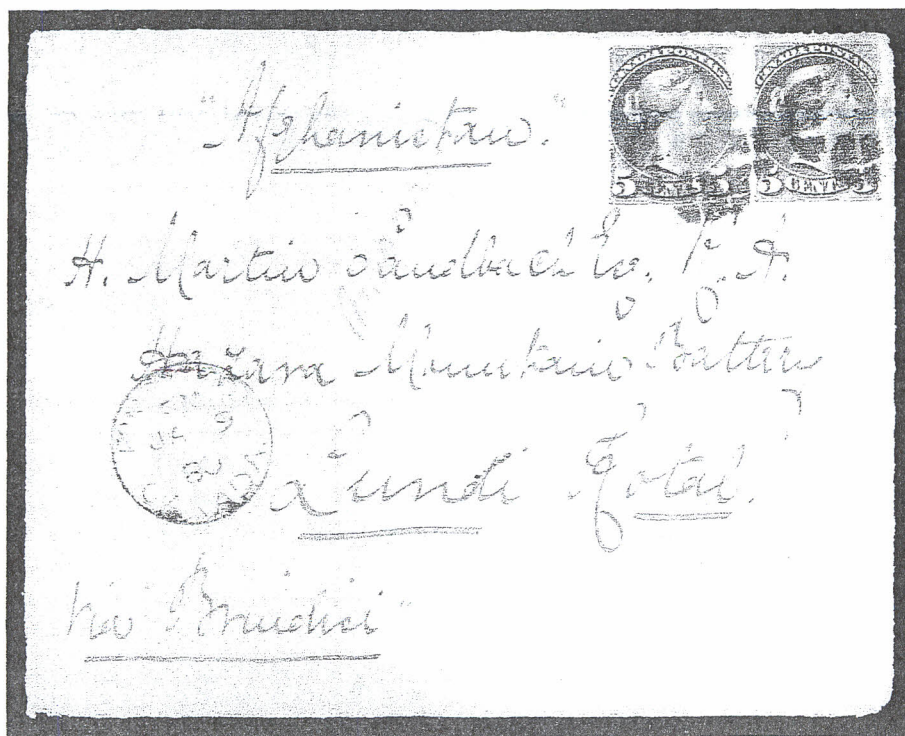 CANADA POSTAGE CANADA POSTAGE
5 CENTS 5 5 CENTS 5
"Afghanistan."
H. Martin Sandbach Esq. R.A.
Hazara Mountain Batter
Lundi Kotal.
JL 9
80
CANADA
Via Brindisi"